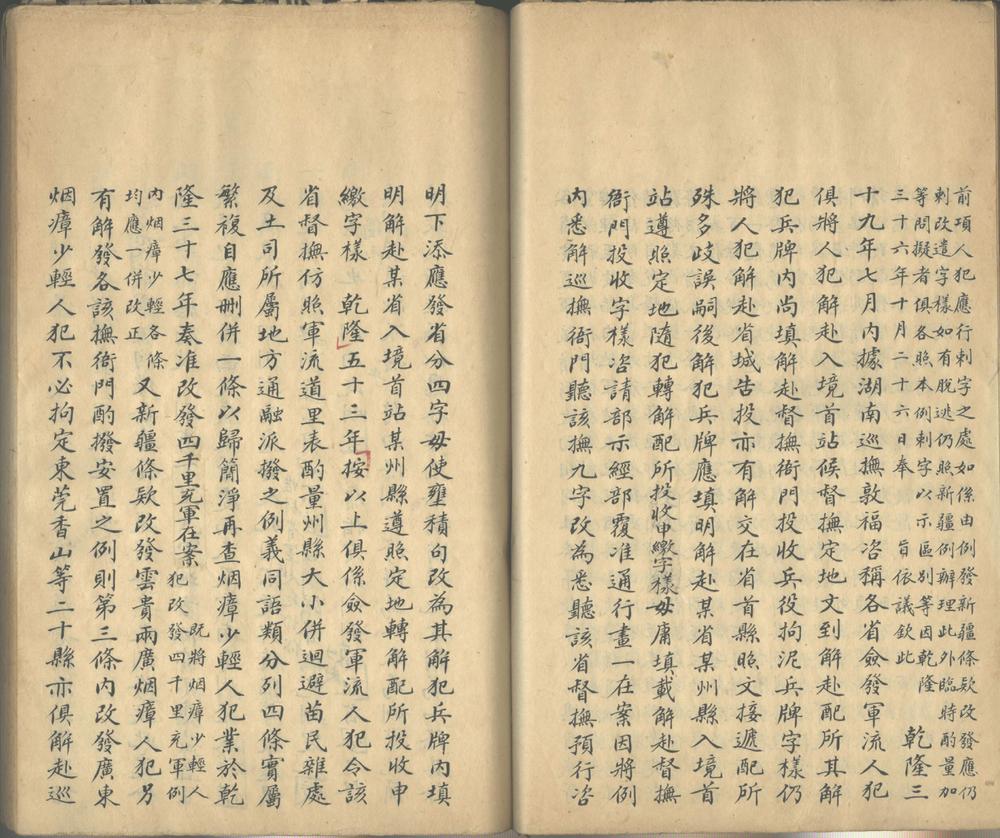 前項人犯應行刺字之處如係由例發新疆條欵改發應仍
刺改遣字樣如有脫逃仍照新疆例辦理此外臨時酌量加
等問擬者俱各照本例刺字以示區別等因乾隆
三十六年十月二十六日奉 旨依議欽此
乾隆三
十九年七月內據湖南巡撫敦福咨稱各省僉發軍流人犯
俱將人犯解赴入境首站候督撫定地文到解赴配所其解
犯兵牌內尚填解赴督撫衙門投收兵役拘泥兵牌字樣仍
將人犯解赴省城告投亦有解交在省首縣照文接遞配所
殊多歧誤嗣後解犯兵牌應填明解赴某省某州縣入境首
站遵照定地隨犯轉解配所投收申繳字樣毋庸填載解赴督撫
衙門投收字樣咨請部示經部覆准通行畫一在案因將例
內悉解巡撫衙門聽該撫九字改為悉聽該省督撫預行咨
明下添應發省分四字毋使壅積句改為其解犯兵牌內填
明解赴某省入境首站某州縣遵照定地轉解配所投收申
繳字樣 乾隆五十三年按以上俱係僉發軍流人犯令該
省督撫仿照軍流道里表酌量州縣大小併迴避苗民雜處
及土司所屬地方通融派撥之例義同語類分列四條實屬
繁複自應刪併一條以歸簡淨再查烟瘴少輕人犯業於乾
隆三十七年奏准改發四千里充軍在案 既將烟瘴少輕人
犯改發四千里充軍例
內烟瘴少輕各條
均應一併改正 又新疆條欵改發雲貴兩廣烟瘴人犯另
有解發各該撫衙門酌撥安置之例則第三條內改發廣東
烟瘴少輕人犯不必拘定東莞香山等二十縣亦俱解赴巡